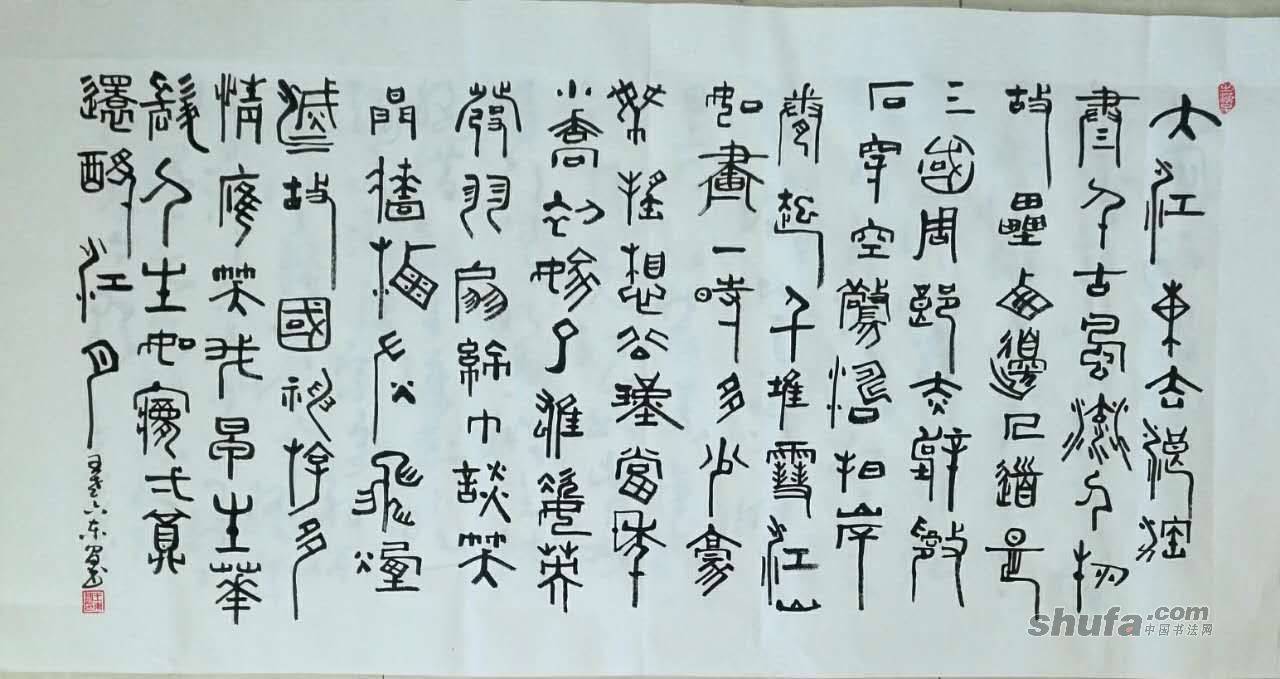 大江東去浪淘
盡千古風流人物
故壘西邊人道是
三國周郎赤壁亂
石穿空驚濤拍岸
卷起千堆雪江山
如畫一時多少豪
傑遙想公瑾當年
小喬初嫁了雄姿英
發羽扇綸巾談笑
間檣櫓灰飛煙
滅故國神游多
情應笑我早生華
髮人生如夢一尊
還酹江月
shufa.com
中国书法网